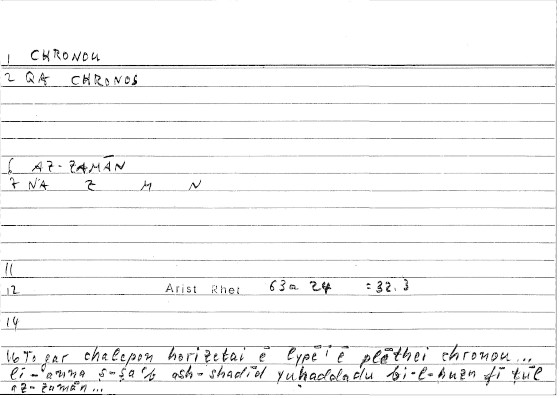 1 CHRONOU
2 QA CHRONOS
6 AZ-ZAMĀN
7 NA Z M N
11
12 Arist Rhet 63a 24 =32.3
14
16 To gar chalepon horizetai ē lypēi ē plēthei chronou...
li-anna ṣ-ṣa'b ash-shadīd yuḥaddadu bi-l-ḥuzn fī ṭūl
az-zamān...